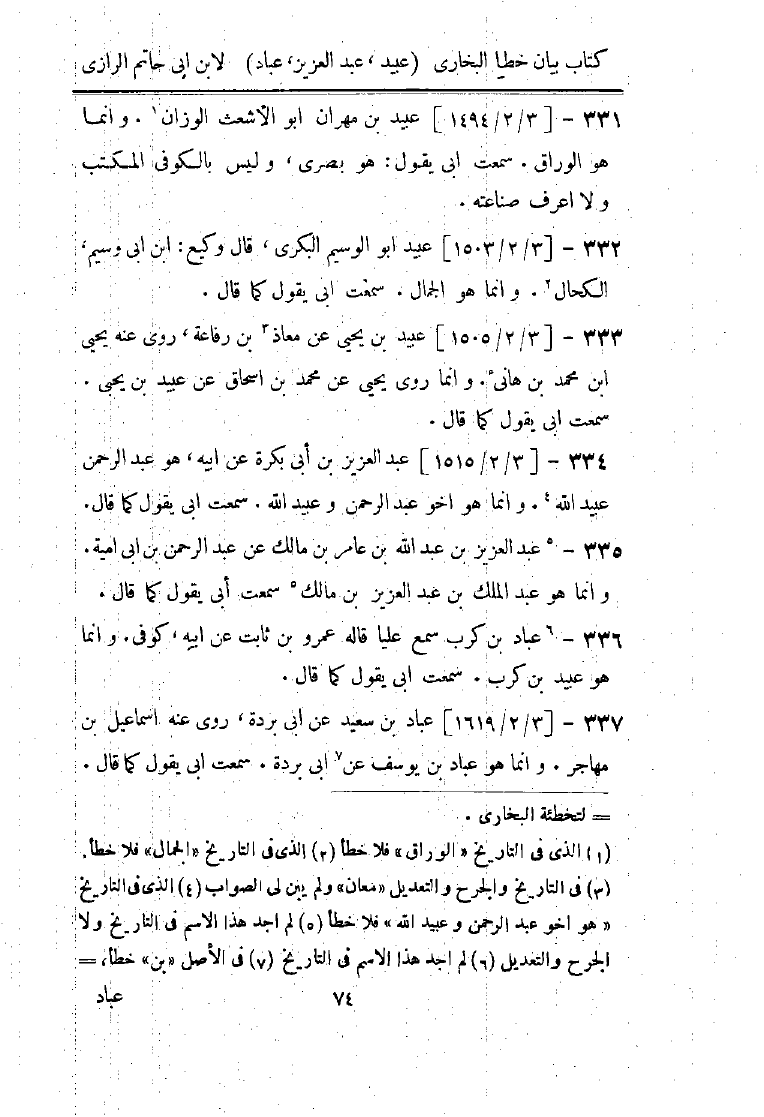 كتاب بيان خطإ البخارى (عبيد، عبد العزيز، عباد) لابن ابى حاتم الرازى
٣٣١ – [١٤٩٤/٢/٣] عبيد بن مهران ابو الاشعث الوزان١. و انما
هو الوراق. سمعت ابى يقول: هو بصرى، و ليس بالكوفى المكتب
و لا اعرف صناعته.
٣٣٢ – [١٥٠٣/٢/٣] عبيد ابو الوسيم البكرى، قال وكيع: ابن ابى وسيم،
الكحال٢. و انما هو الجمال. سمعت ابى يقول كما قال.
٣٣٣ – [١٥٠٥/٢/٣] عبيد بن يحيى عن معاذ٣ بن رفاعة، روى عنه يحيى
ابن محمد بن هانى.ء و انما روى يحيى عن محمد بن اسحاق عن عبيد بن يحيى.
سمعت ابى يقول كما قال.
٣٣٤ – [١٥١٥/٢/٣] عبد العزيز بن أبى بكرة عن ابيه، هو عبد الرحمن
عبيد الله٤. و انما هو اخو عبد الرحمن و عبيد الله. سمعت ابى يقول كما قال.
٣٣٥ – ٥عبد العزيز بن عبد الله بن عامر بن مالك عن عبد الرحمن بن ابى امية.
و انما هو عبد الملك بن عبد العزيز بن مالك٥ سمعت أبى يقول كما قال.
٣٣٦ – ٦عباد بن كرب سمع عليا قاله عمرو بن ثابت عن ابيه، كوفى. و انما
هو عبيد بن كرب. سمعت ابى يقول كما قال.
٣٣٧ – [١٦١٩/٢/٣] عباد بن سعيد عن ابى بردة، روى عنه اسماعيل بن
مهاجر. و انما هو عباد بن يوسف عن٧ ابى بردة. سمعت ابى يقول كما قال.
= لتخطئة البخارى.
(١) الذى فى التاريخ «الوراق» فلا خطأ (٢) الذى فى التاريخ «الجمال» فلا خطأ.
(٣) فى التاريخ والجرح والتعديل «معان» ولم يبن لى الصواب (٤) الذى فى التاريخ
« هو اخو عبد الرحمن و عبيد الله » فلا خطأ (٥) لم اجد هذا الاسم فى التاريخ ولا
الجرح والتعديل (٦) لم اجد هذا الاسم فى التاريخ (٧) فى الأصل «بن» خطأ، =
٧٤ عباد